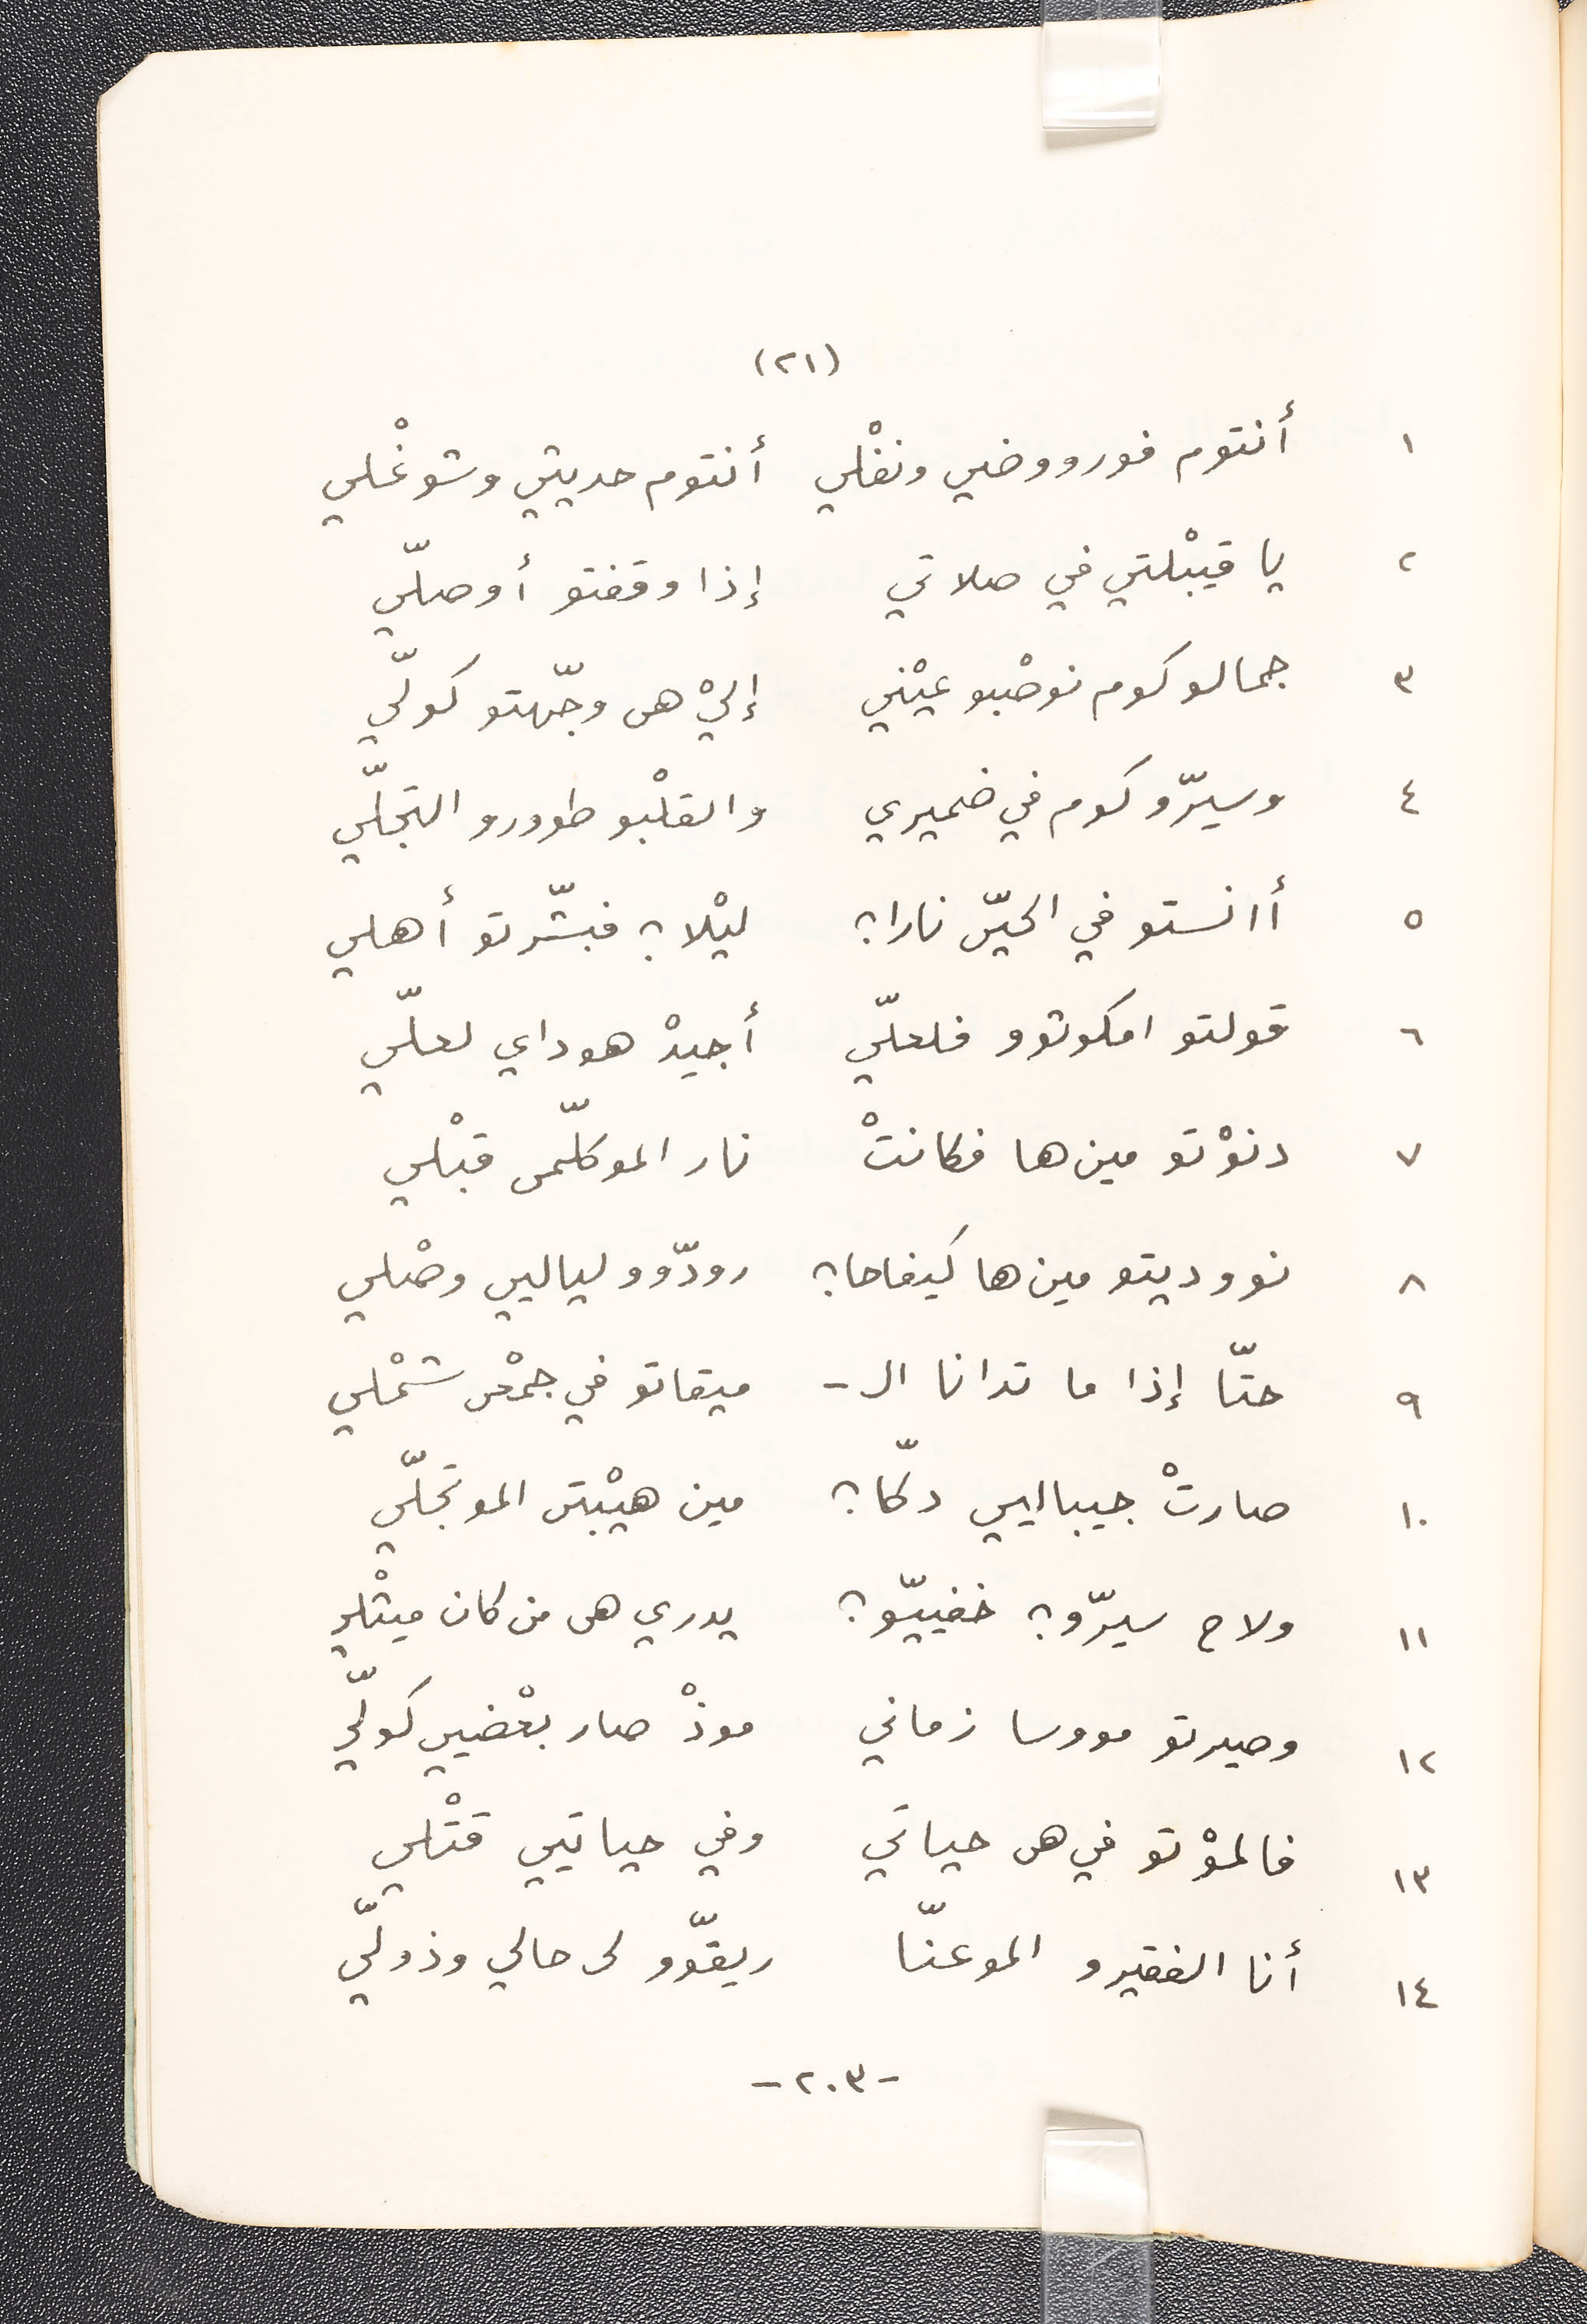 (٢١)
١ أنتوم فوروو ضي ونفْلي أنتوم حديثي وشوغْلي
٢ يا قيبْلتي في صلاتي إذا وقفتو أوصلّي
٣ جمالو كوم نوصْبو عيْني إليْ هى وجّهتو كولّي
٤ وسيرّو كوم في ضميري والقلْبو طوورو التجلّي
٥ أانستو في الحيّى نارا؟ ليْلا؟ فبشّرتو أهلي
٦ قولتو امكوثوو فلعلّي أجيدْ هوداي لعلّي
٧ دنوْتو مين ها فكانتْ نار الموكلّمى قبْلي
٨ نووديتو مين ها كيفاحا؟ رودّوو لياليي وصْلي
٩ حتّا إذا ما تدانا الـ- ميقاتو في جمْعى شمْلي
١٠ صارتْ جيباليي دكّا؟ مين هيْبتى الموتجلّي
١١ ولاح سيرّو؟ خفييّو؟ يدري هى من كان ميثْلي
١٢ وصيرتو مووسا زماني موذْ صار بعْضيي كولّي
١٣ فالموْتو في هى حياتي وفي حياتيي قتْلي
١٤ أنا الفقيرو الموعنّا ريقّوو لى حالي وذولّي
-٢٠٣-